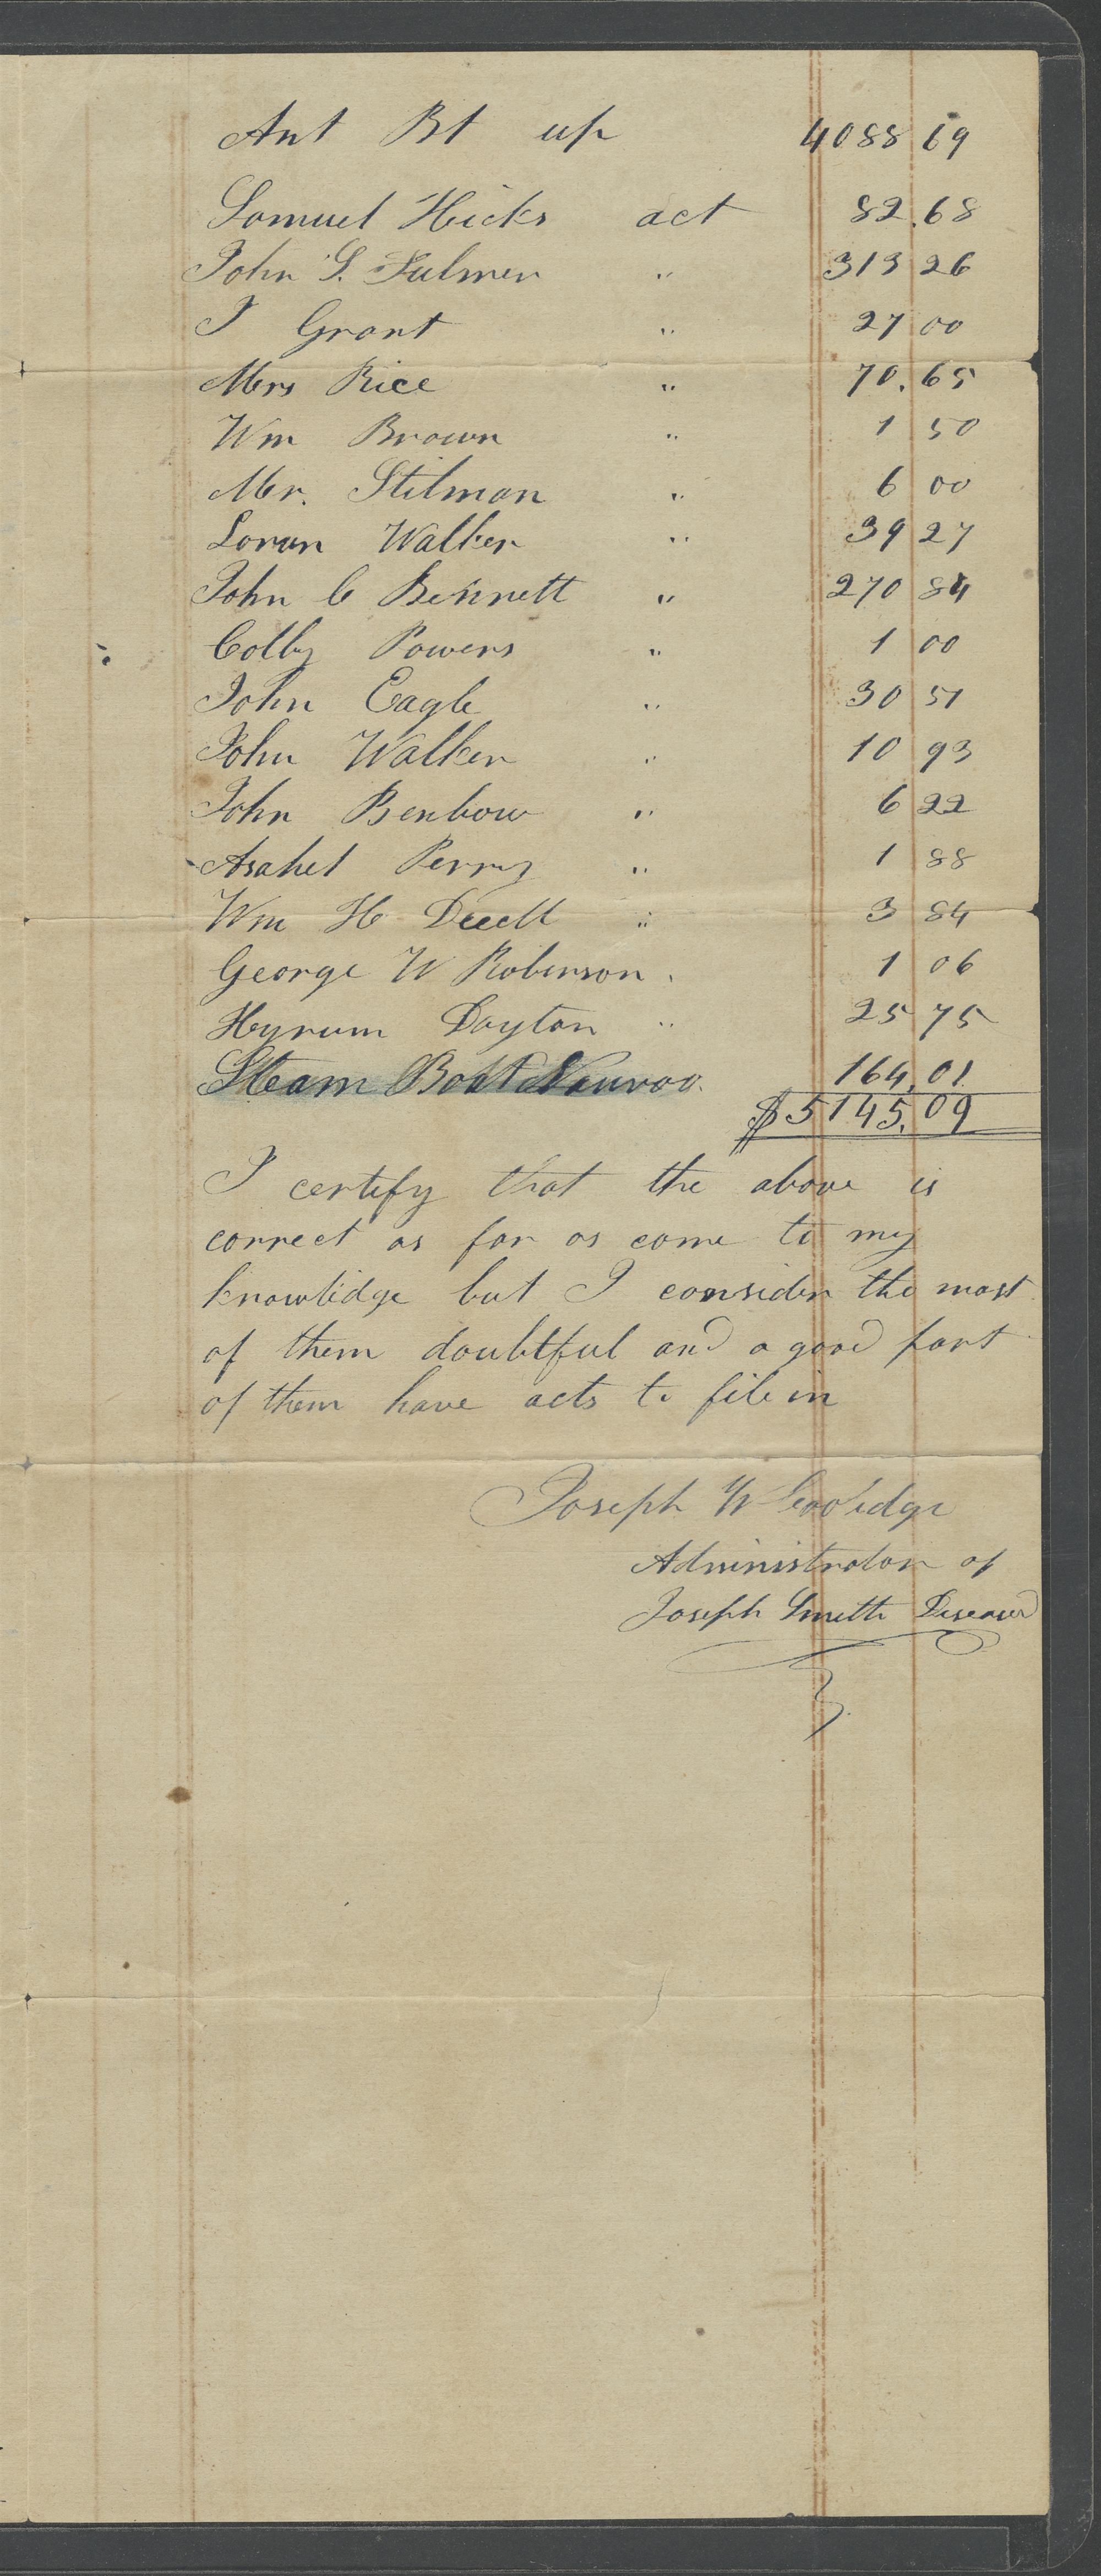 Amt Bt up 4088 69
Samuel Hicks act 82.68
John S. Fulmer " 313 26
J Grant " 27 00
Mrs Rice " 70.65
Wm Brown " 1 50
Mr. Stilman " 6 00
Loran Walker " 39 27
John C Bennett " 270 84
Colby Powers " 1 00
John Eagle " 30 51
John Walker " 10 93
John Benbow " 6 22
Asahel Perry " 1 88
Wm H " 3 84
George W Robinson " 1 06
Hyrum Dayton " 25 75
Steam Boat Nauvoo. 164.01
$5145.09
I certify that the above is
correct as far as come to my
knowlidge but I consider the most
of them doubtful and a good part
of them have acts to file in
Joseph W Coolidge
Administrator of
Joseph Smith Diseased